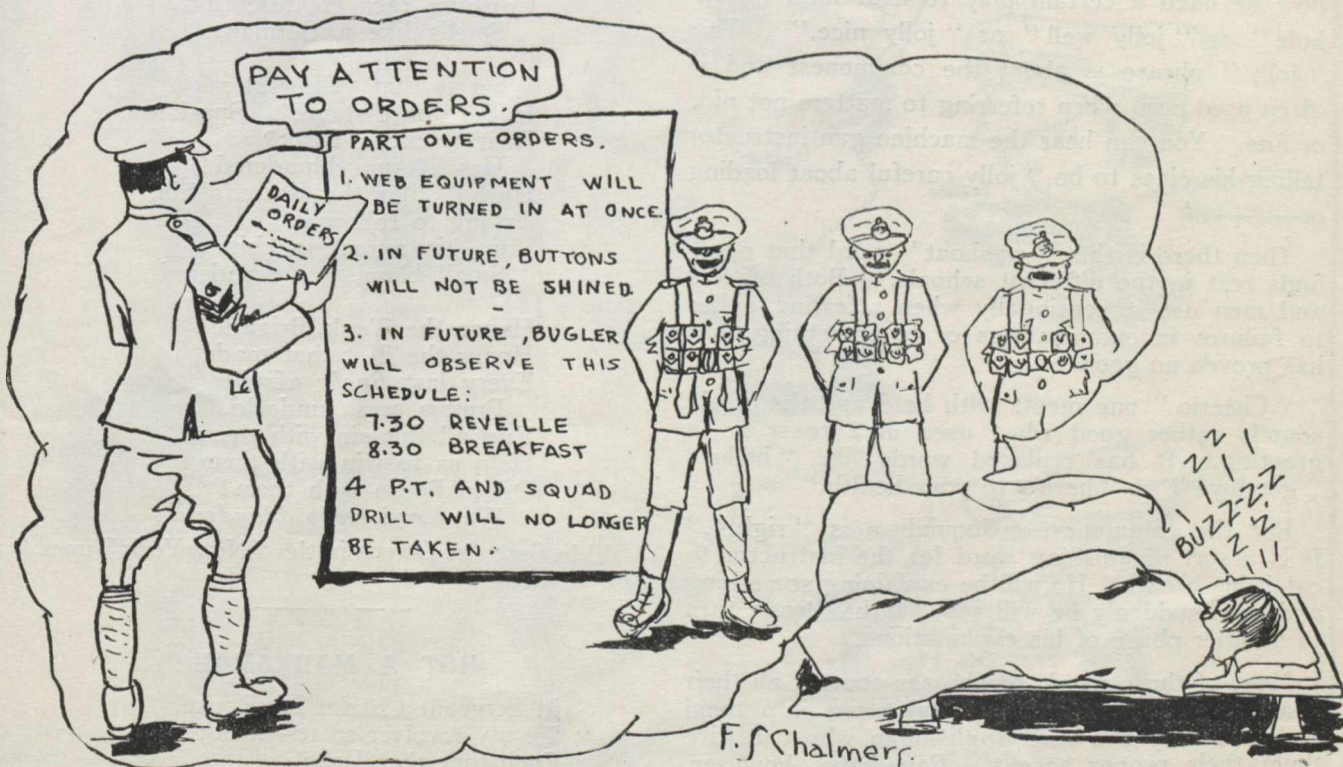 PAY ATTENTION
TO ORDERS.
DAILY
ORDERS
PART ONE ORDERS.
1. WEB EQUIPMENT WILL
BE TURNED IN AT ONCE.
2. IN FUTURE, BUTTONS
WILL NOT BE SHINED
3. IN FUTURE, BUGLER
WILL OBSERVE THIS
SCHEDULE:
7.30 REVEILLE
8.30 BREAKFAST
4 P.T. AND SQUAD
DRILL WILL NO LONGER
BE TAKEN.
Z
Z
Z
BUZZZZ
Z
Z
F. S Chalmers.